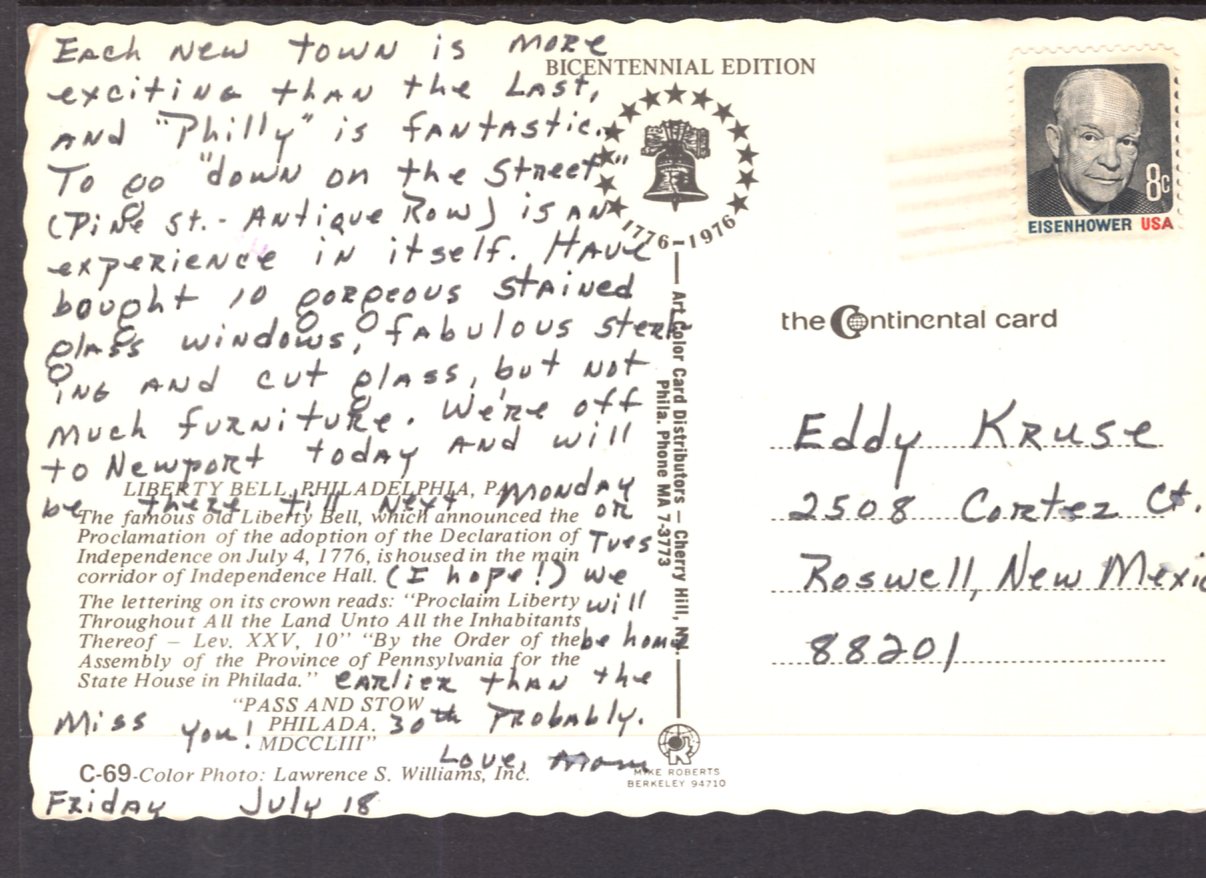 Each New town is more
exciting than the Last,
and "Philly" is fantastic.
To go "down on the Street"
(Pine St. - Antique Row) is an
experience in itself. Have
bought 10 gorgeous stained
glass windows, fabulous sterl-
ing and cut glass, but not
much furniture. We're off
to Newport today and will
be there till next Monday
or
Tues
(I hope!) we
will
be home
earlier than the
30th Probably.
Miss you!
Love, Mom
Friday July 18
BICENTENNIAL EDITION
1776-1976
LIBERTY BELL, PHILADELPHIA, PA.
The famous old Liberty Bell, which announced the
Proclamation of the adoption of the Declaration of
Independence on July 4, 1776, is housed in the main
corridor of Independence Hall.
The lettering on its crown reads: "Proclaim Liberty
Throughout All the Land Unto All the Inhabitants
Thereof — Lev. XXV, 10" "By the Order of the
Assembly of the Province of Pennsylvania for the
State House in Philada."
"PASS AND STOW
PHILADA.
MDCCLIII"
C-69-Color Photo: Lawrence S. Williams, Inc.
Art Color Card Distributors — Cherry Hill, N.J.
Phila. Phone MA 7-3773
MIKE ROBERTS
BERKELEY 94710
8c
EISENHOWER USA
the Continental card
Eddy Kruse
2508 Cortez Ct.
Roswell, New Mexic
88201